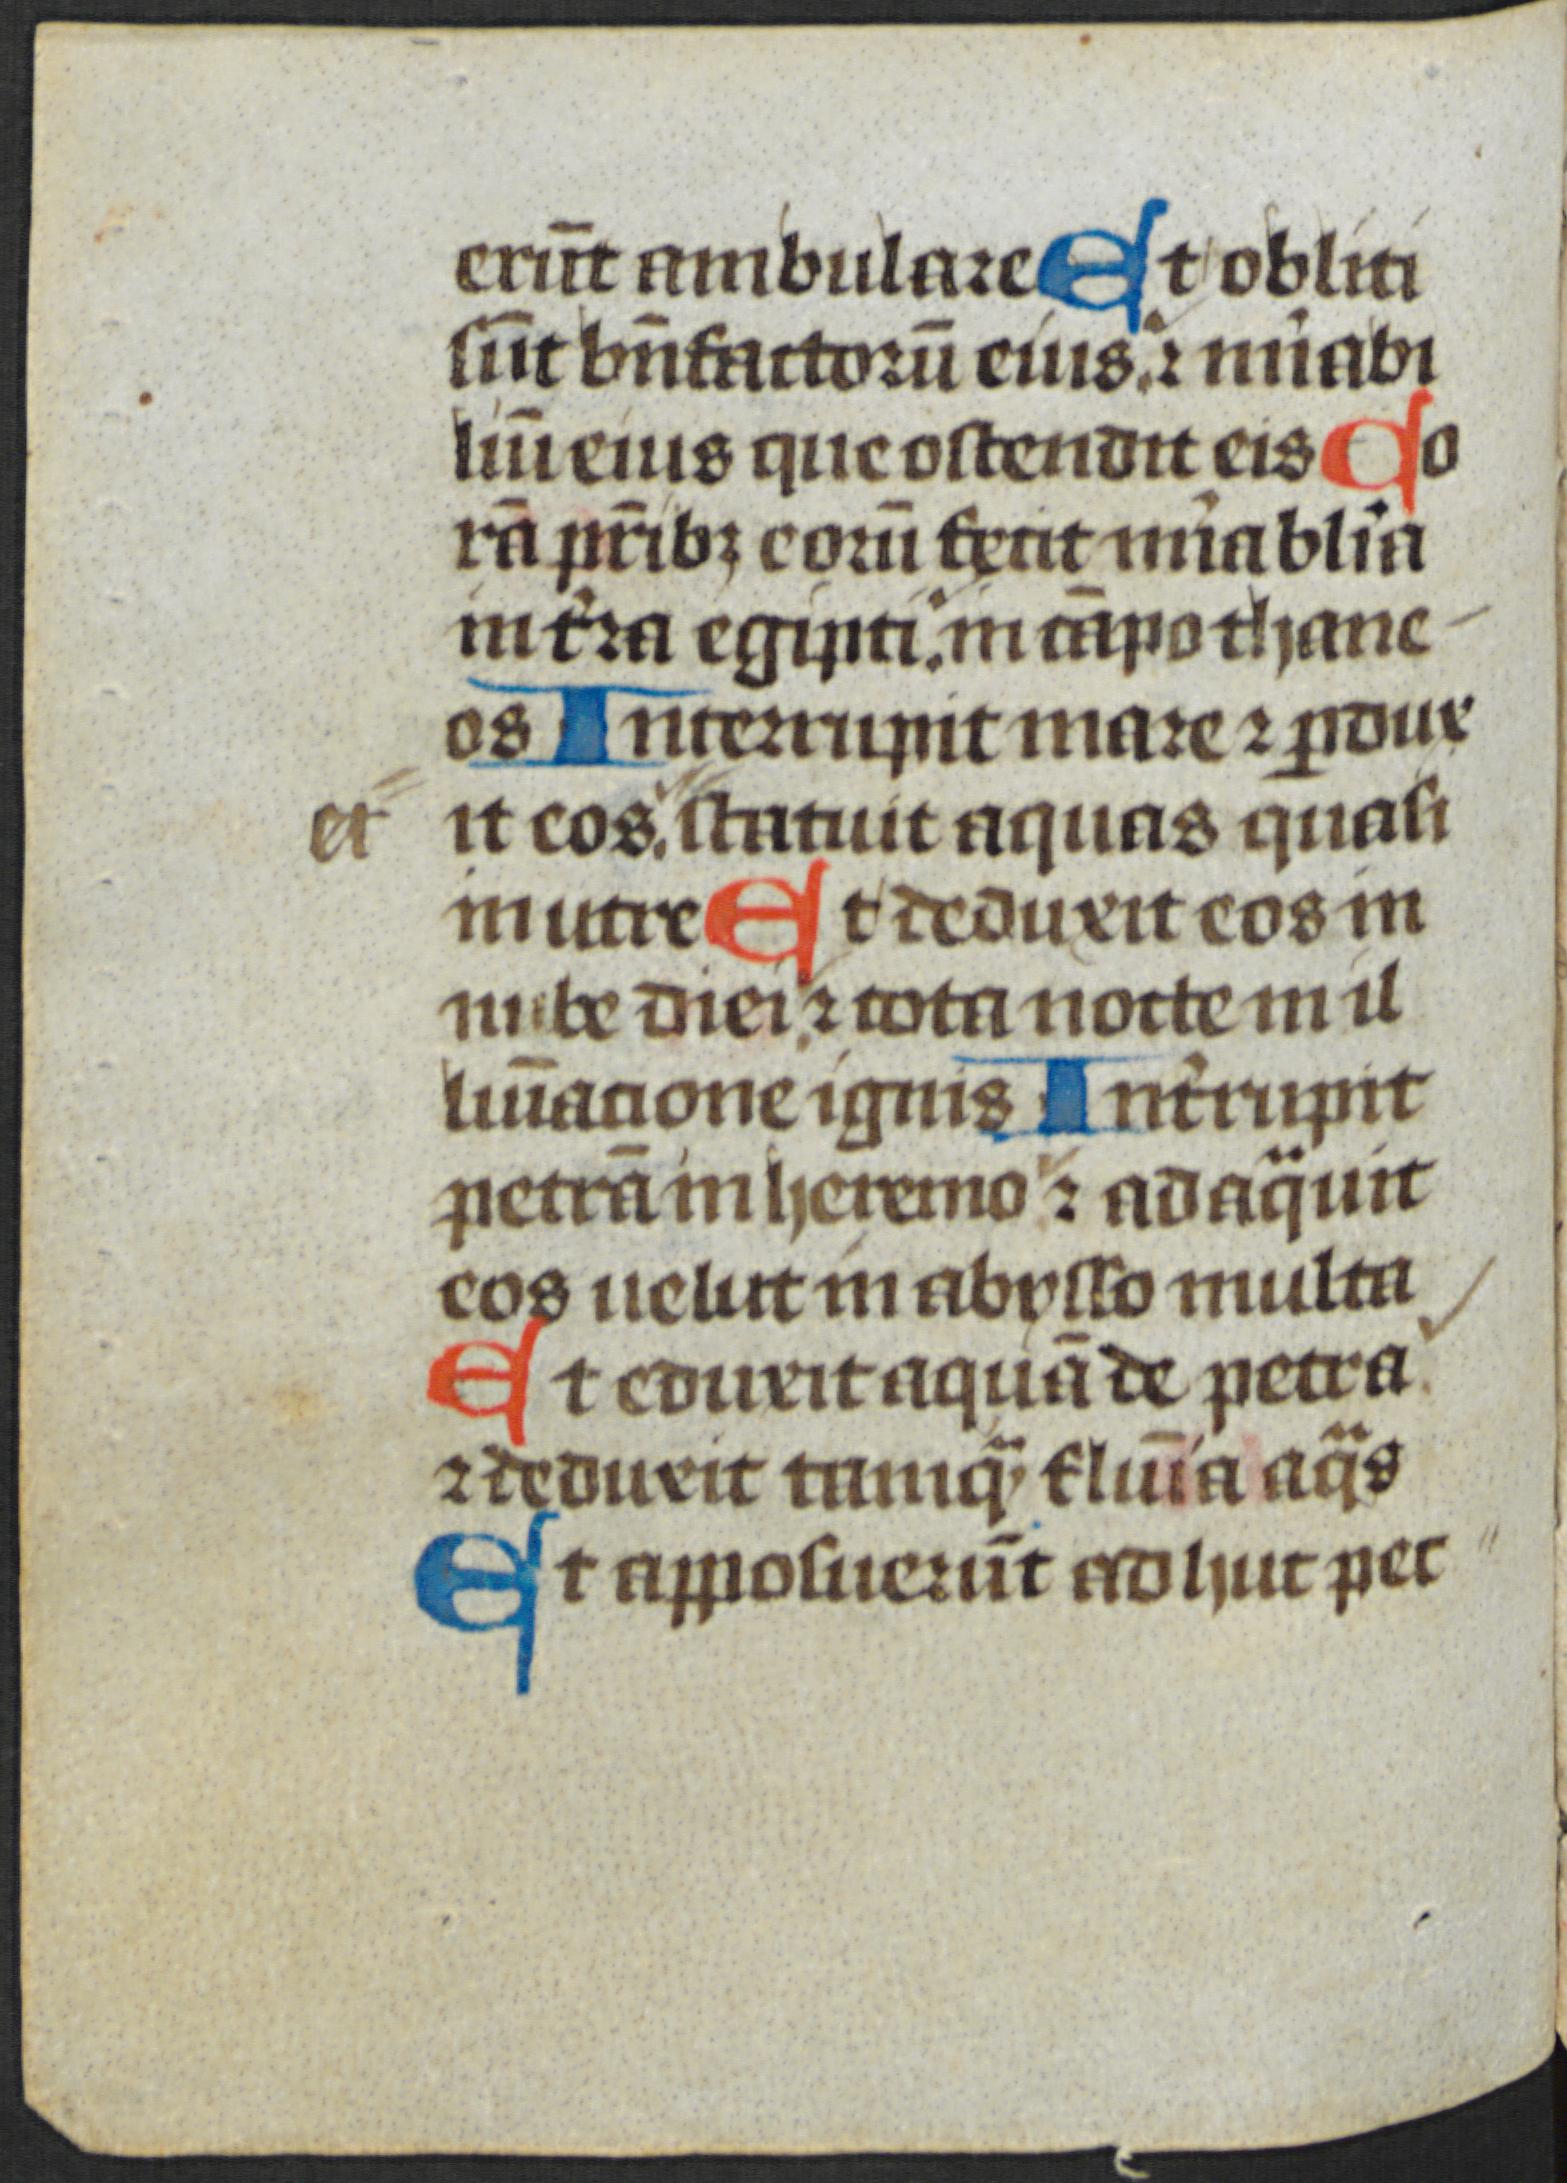 erūt ambulare Et obliti
sūt bn̄factorū eius. ⁊ mirabi
liū eius que ostendit eis Co
rā pr̄ibꝫ eorū fecit mirablia
in tr̉ra egipti. in cāpo thane
os Interrupit mare ⁊ ꝑdux
et it eos. statuit aquas quasi
in utre Et deduxit eos in
nube diei. ⁊ tota nocte in il
luīacione ignis Int̉rupit
petrā in heremo ⁊ adaq̈uit
eos uelut in abysso multa
Et eduxit aquā de petra
⁊ deduxit tamq̄ᷓ fluīa aq̈s
Et apposuerūt adhuc pec